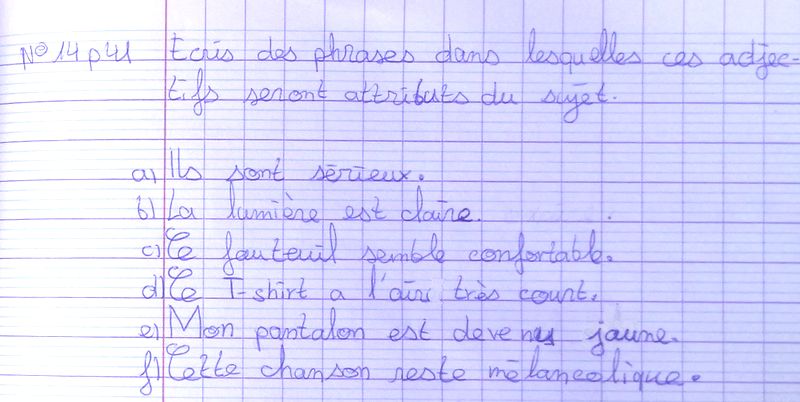 N° 14 p 41 Ecris des phrases dans lesquelles ces adjec-
tifs seront attributs du sujet.
a) Ils sont sérieux.
b) La lumière est claire.
c) Ce fauteuil semble confortable.
d) Ce T-shirt a l'air très court.
e) Mon pantalon est devenu jaune.
f) Cette chanson reste mélancolique.